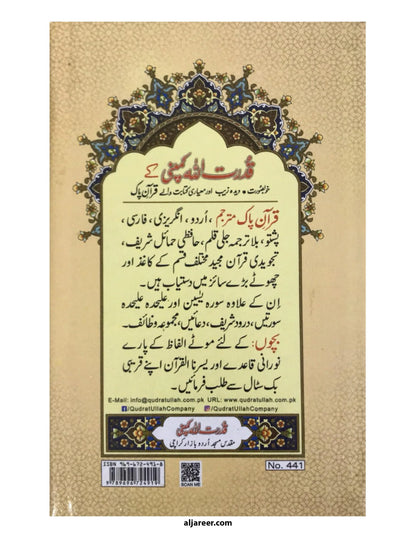 قدرت اللہ کمپنی کے
خوبصورت • دیدہ زیب اور معیاری کتابت والے قرآن پاک
قرآن پاک مترجم، اُردو، انگریزی، فارسی،
پشتو، بلا ترجمہ جلی قلم، حافظی حمائل شریف،
تجویدی قرآن مجید مختلف قسم کے کاغذ اور
چھوٹے بڑے سائز میں دستیاب ہیں۔
اِن کے علاوہ سورہ یٰسین اور علیحدہ علیحدہ
سورتیں، درود شریف، دعائیں، مجموعہ وظائف۔
بچوں: کے لئے موٹے الفاظ کے پارے
نورانی قاعدے اور یسرنا القرآن اپنے قریبی
بک سٹال سے طلب فرمائیں۔
E-Mail: info@qudratullah.com.pk URL: www.qudratullah.com.pk
/QudratUllahCompany /QudratUllahCompany
قدرت اللہ کمپنی
مقدس مسجد اُردو بازار کراچی
ISBN 969-672-491-8
9789696724919
SCAN ME
No. 441
aljareer.com